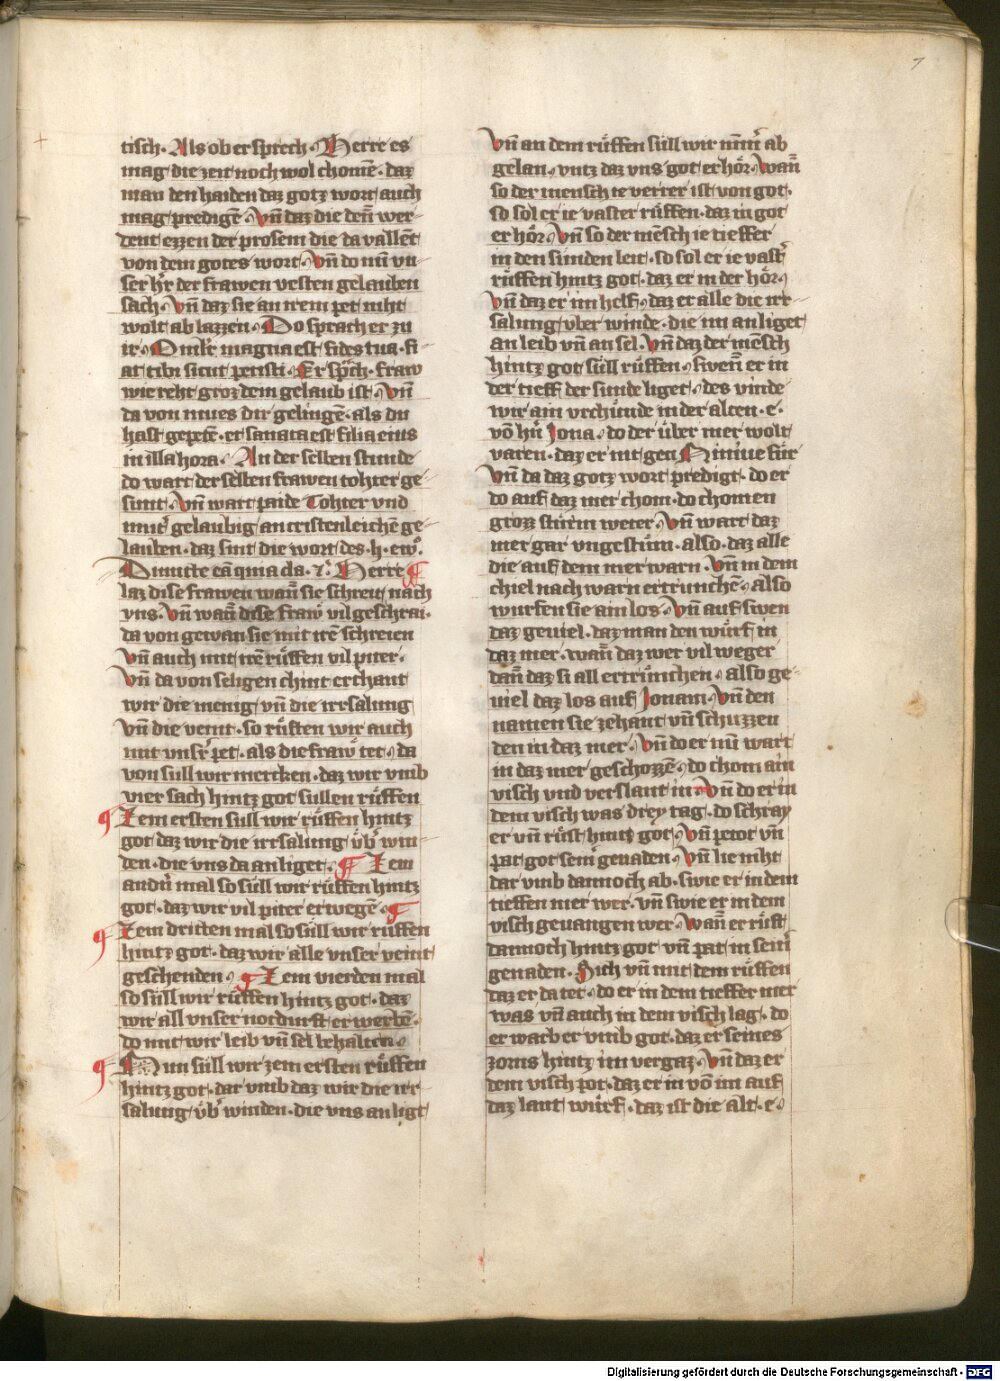 7
tisch. Als ob er sprech. Herre es
mag die zeit noch wol chomē. daz
man den haiden daz gotz wort auch
mag predigē. Vn̄ daz die denn̄ wer-
dent ezzen der prosem die da vallēt
von dem gotes wort. Vn̄ do nu vn-
ser hr̄ der frawen vesten gelauben
sach. Vn̄ daz sie an irem pet niht
wolt ab lazzen. Do sprach er zu
ir. O mulr̄ magna est fides tua. fi-
at tibi sicut petisti. Er sp̄ch. fraw
wie reht groz dem gelaub ist. Vn̄
da von mues dir gelingē. als du
hast gepetē. et sanata est filia eius
in illa hora. An der selben stunde
do wart der selben frawen tohter ge-
sunt. Vn̄ wart paide Tohter vnd
mut̄ gelaubig an cristenleichē ge-
lauben. daz sint die wort des. h. ewº.
Dimitte eā quia cla. ⁊c. Herre
laz dise frawen wan̄ sie schreit nach
vns. Vn̄ wan̄ dise fraw vil geschrai.
da von gewan sie mit irē schreien
Vn̄ auch mit irē rüffen vil piter.
Vn̄ da von seligen chint erchant
wir die menig vn̄ die irrsalung
Vn̄ die veint. so rüften wir auch
mit vnsr̄ pet. als die fraw tet. da
von süll wir mercken. daz wir vmb
vier sach hintz got sullen rüffen
Zem ersten süll wir rüffen hintz
got daz wir die irrsalung üb̄ win-
den. die vns da anliget. Zem
andn̄ mal so süll wir rüffen hintz
got. daz wir vil piter erwegē.
Zem dritten mal so süll wir rüffen
hintz got. daz wir alle vnser veint
geschenden. Zem vierden mal
so süll wir rüffen hintz got. daz
wir all vnser notdurft erwerbē.
do mit wir leib vn̄ sel behalten.
Nun süll wir zem ersten rüffen
hintz got. dar vmb daz wir die irr-
salung üb̄ winden. die vns anligt
Vn̄ an dem rüffen süll wir nīm̄ ab
gelan. vntz daz vns got erhör. Wan̄
so der mensch ie verrer ist von got.
so sol er ie vaster rüffen. daz in got
erhör. Vn̄ so der mēsch ie tieffer
in den sunden leit. so sol er ie vast̄
rüffen hintz got. daz er in der hör.
Vn̄ daz er im helf. daz er alle die irr-
salung vber winde. die im anliget
an leib vn̄ an sel. Vn̄ daz der mēsch
hintz got süll rüffen. swen̄ er in
der tieff der sunde liget. des vinde
wir ain vrchünde in der alten. e.
vō hn̄ Jona. do der über mer wolt
varen. daz er nit gen Niniue für
Vn̄ da daz gotz wort predigt. do er
do auf daz mer chom. do chomen
grozz stürm weter. Vn̄ wart daz
mer gar vngestüm. also. daz alle
die auf dem mer warn. Vn̄ in dem
chiel nach warn ertrunchē. also
wurfen sie ain los. Vn̄ auf swen
daz geuiel. daz man den würf in
daz mer. wan̄ daz wer vil weger
dan̄ daz si all ertrünchen. also ge-
uiel daz los auf Jonam. Vn̄ den
namen sie zehant vn̄ schuzzen
den in daz mer. Vn̄ do er nu wart
in daz mer geschozzē. do chom ain
visch vnd verslant in. Vn̄ do er in
dem visch was drey tag. do schray
er vn̄ rüft hintz got. Vn̄ petot vn̄
pat got sein̄ genaden. Vn̄ lie niht
dar vmb dannoch ab. swie er in dem
tieffen mer wer. vn̄ swie er in dem
visch geuangen wer. Wan̄ er rüft
dannoch hintz got vn̄ pat in sein̄
genaden. Sich vn̄ mit dem rüffen
daz er da tet. do er in dem tieffer mer
was vn̄ auch in dem visch lag. do
erwarb er vmb got. daz er seines
zorns hintz im vergaz. Vn̄ daz er
dem visch pot. daz er in vō im auf
daz lant würf. daz ist die alt. e.
Digitalisierung gefördert durch die Deutsche Forschungsgemeinschaft - DFG